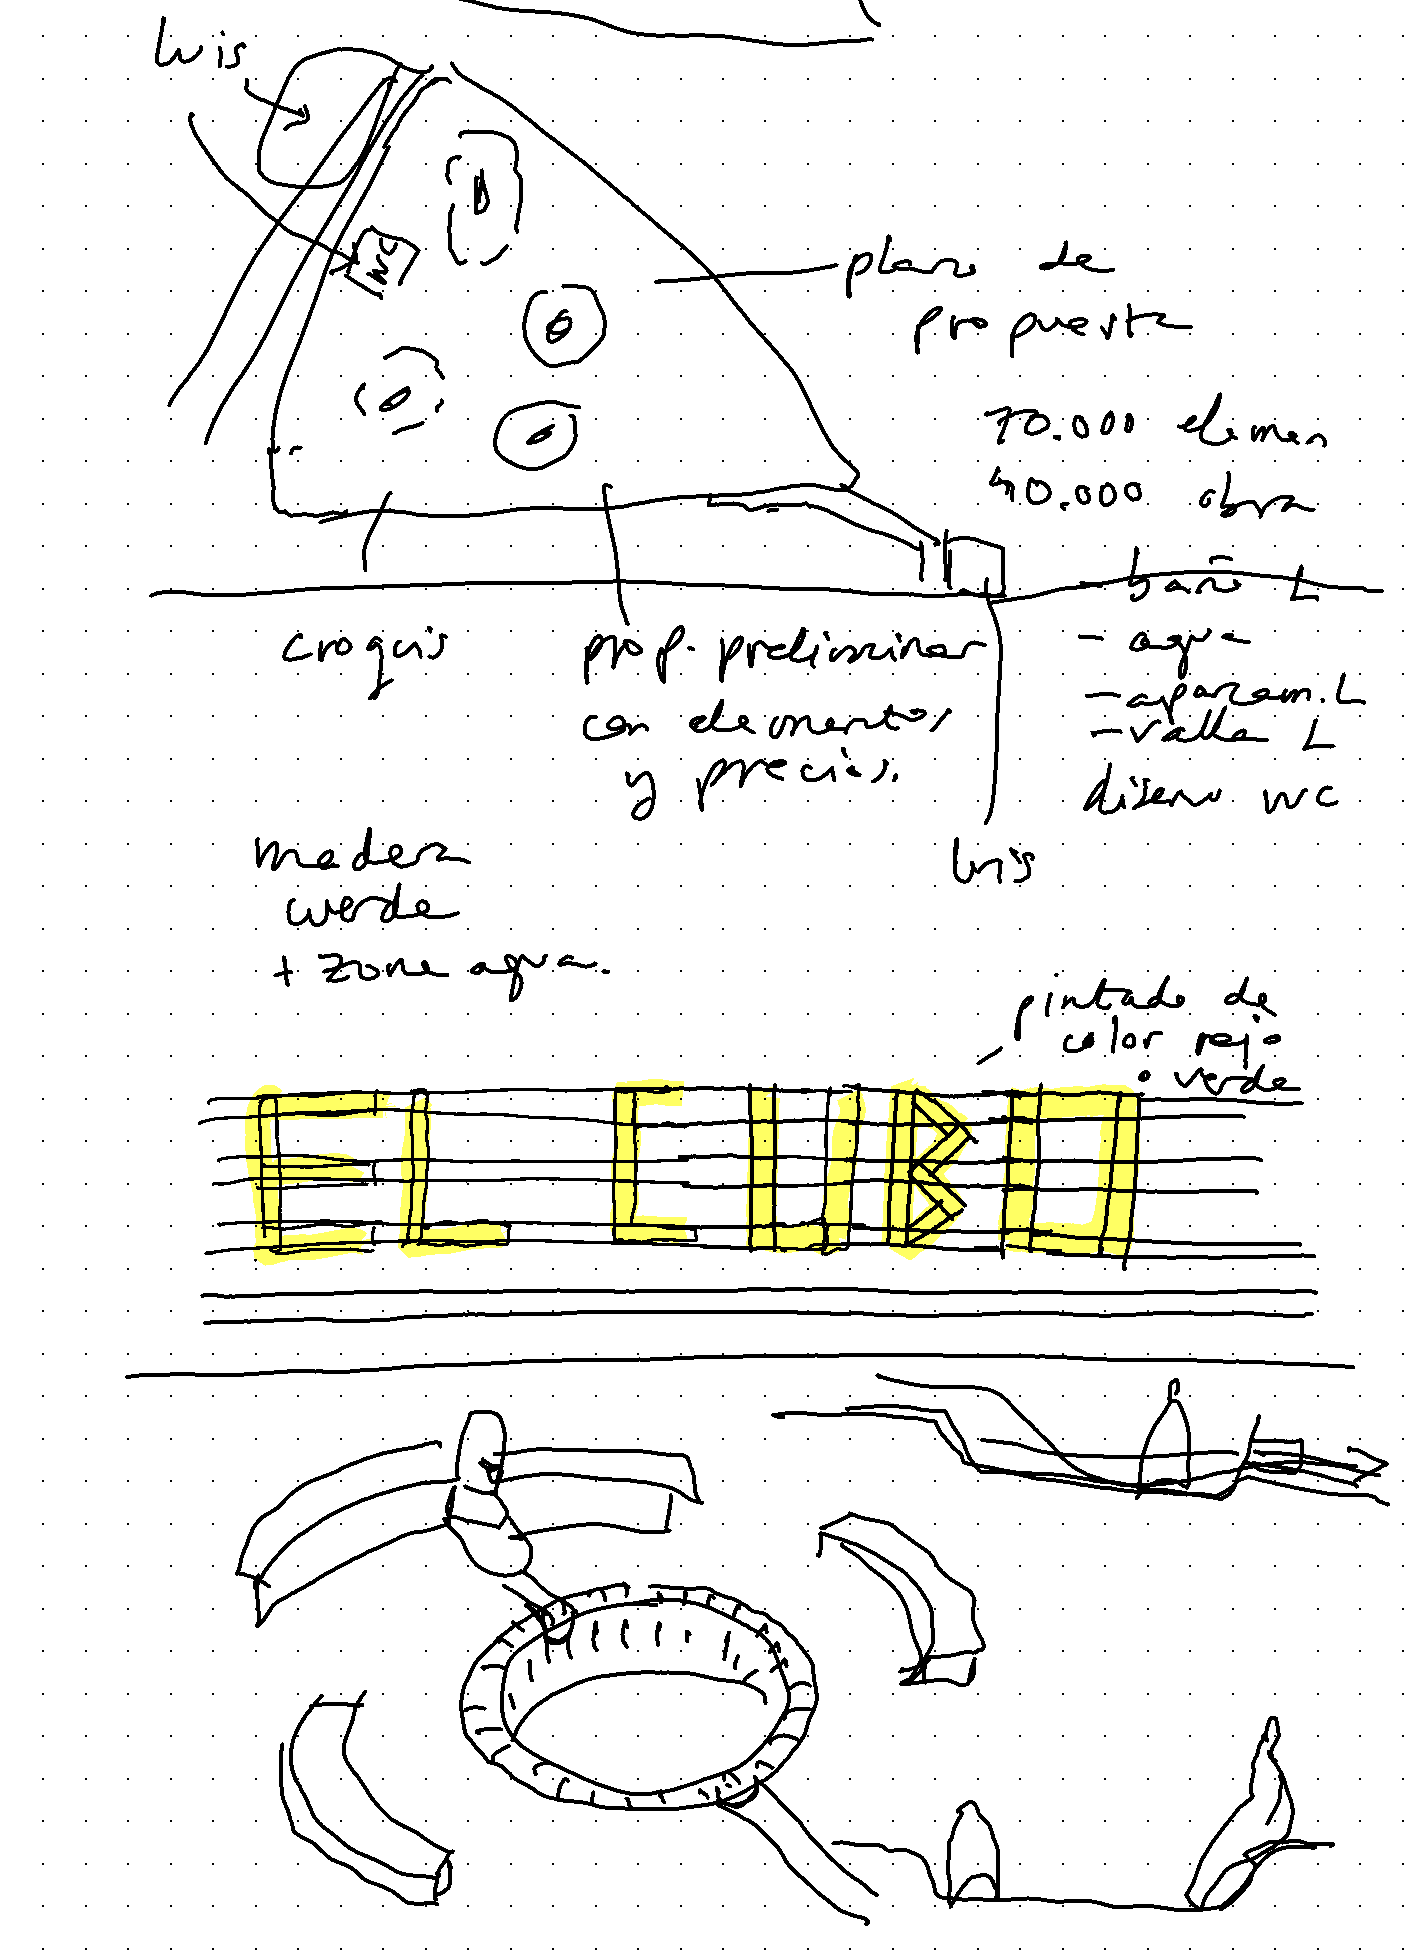 Luis
WC
plano de
propuesta
70.000 elemen
40.000 obra
- baño L
- agua
- aparcam. L
- valla L
diseno WC
croquis
prop. preliminar
con elementos
y precios.
Luis
madera
cuerda
+ zona agua.
pintado de
color rojo
o verde
EL CUBO